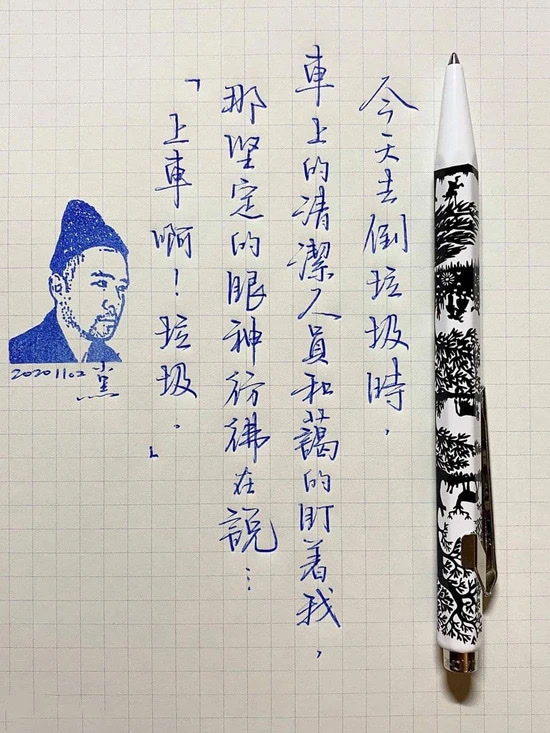 今天去倒垃圾時，
車上的清潔人員和藹的盯著我，
那堅定的眼神彷彿在說⋮
「上車啊！垃圾.」
20201102 黨